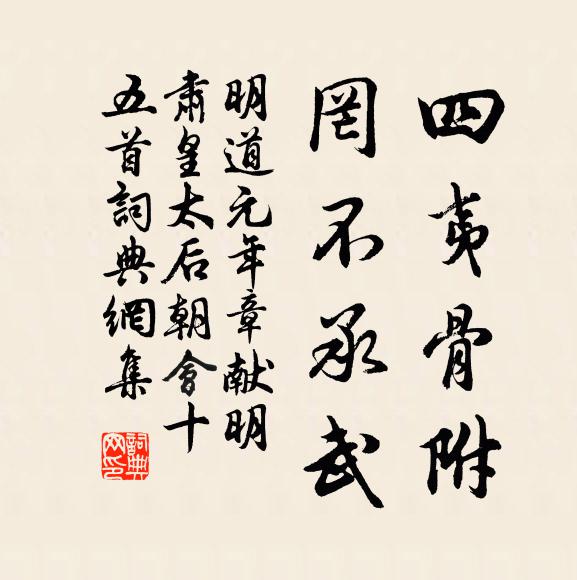 四夷骨附
罔不承武
明道元年章献明
肃皇太后朝會十
五首詞典網集
詞典网印